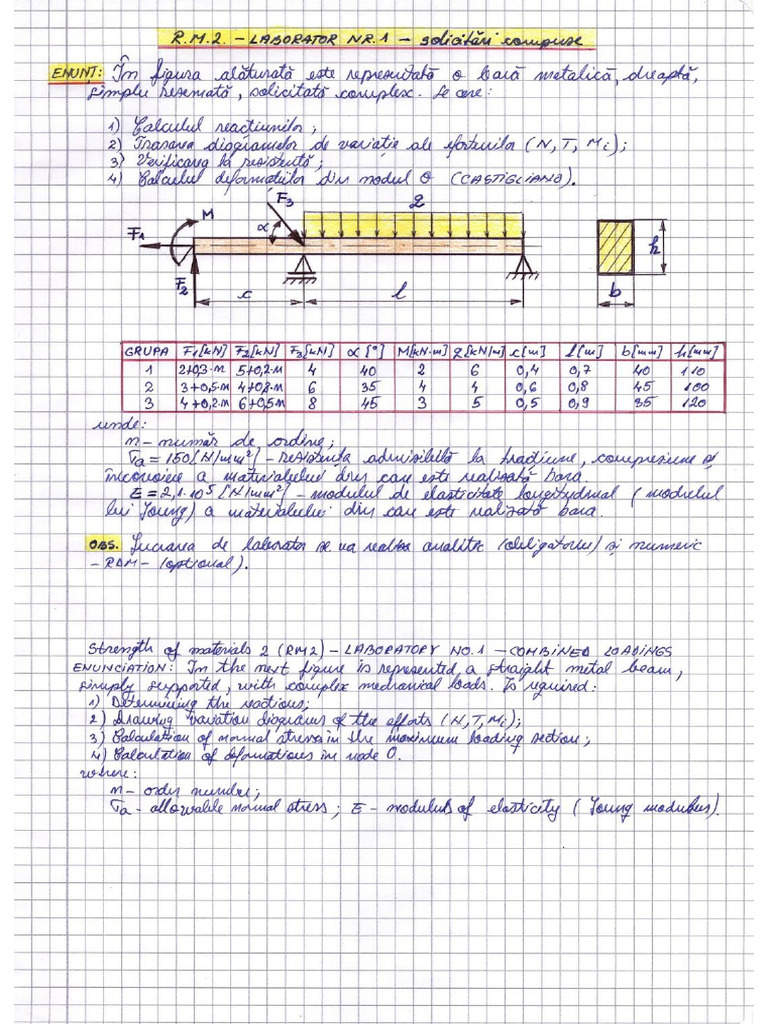 R.M.2. – LABORATOR NR.1 – solicitări compuse
ENUNȚ: În figura alăturată este reprezentată o bară metalică, dreaptă,
simplu rezemată, solicitată complex. Se cere:
1) Calculul reacțiunilor;
2) Trasarea diagramelor de variație ale eforturilor (N, T, Mi);
3) Verificarea la rezistență;
4) Calculul deformațiilor din nodul O (CASTIGLIANO).
F3 q
M
F1 α
h
F2
c l b
GRUPA F1[kN] F2[kN] F3[kN] α [°] M[kN·m] q[kN/m] c[m] l[m] b[mm] h[mm]
1 2+0,3·n 5+0,2·n 4 40 2 6 0,4 0,7 40 110
2 3+0,5·n 4+0,8·n 6 35 4 4 0,6 0,8 45 100
3 4+0,2·n 6+0,5n 8 45 3 5 0,5 0,9 35 120
unde:
n – număr de ordine;
σa = 150 [N/mm²] – rezistența admisibilă la tracțiune, compresiune și
încovoiere a materialului din care este realizată bara.
E = 2,1·10⁵ [N/mm²] – modulul de elasticitate longitudinal (modulul
lui Young) a materialului din care este realizată bara.
OBS. Lucrarea de laborator se va realiza analitic (obligatoriu) și numeric
– RDM – (opțional).
Strength of materials 2 (RM2) – LABORATORY NO.1 – COMBINED LOADINGS
ENUNCIATION: In the next figure is represented a straight metal beam,
simply supported, with complex mechanical loads. Is required:
1) Determining the reactions;
2) Drawing variation diagrams of the efforts (N, T, Mi);
3) Calculation of normal stress in the maximum loading section;
4) Calculation of deformations in node O.
where:
n – order number;
σa – allowable normal stress; E – modulus of elasticity (Young modulus).